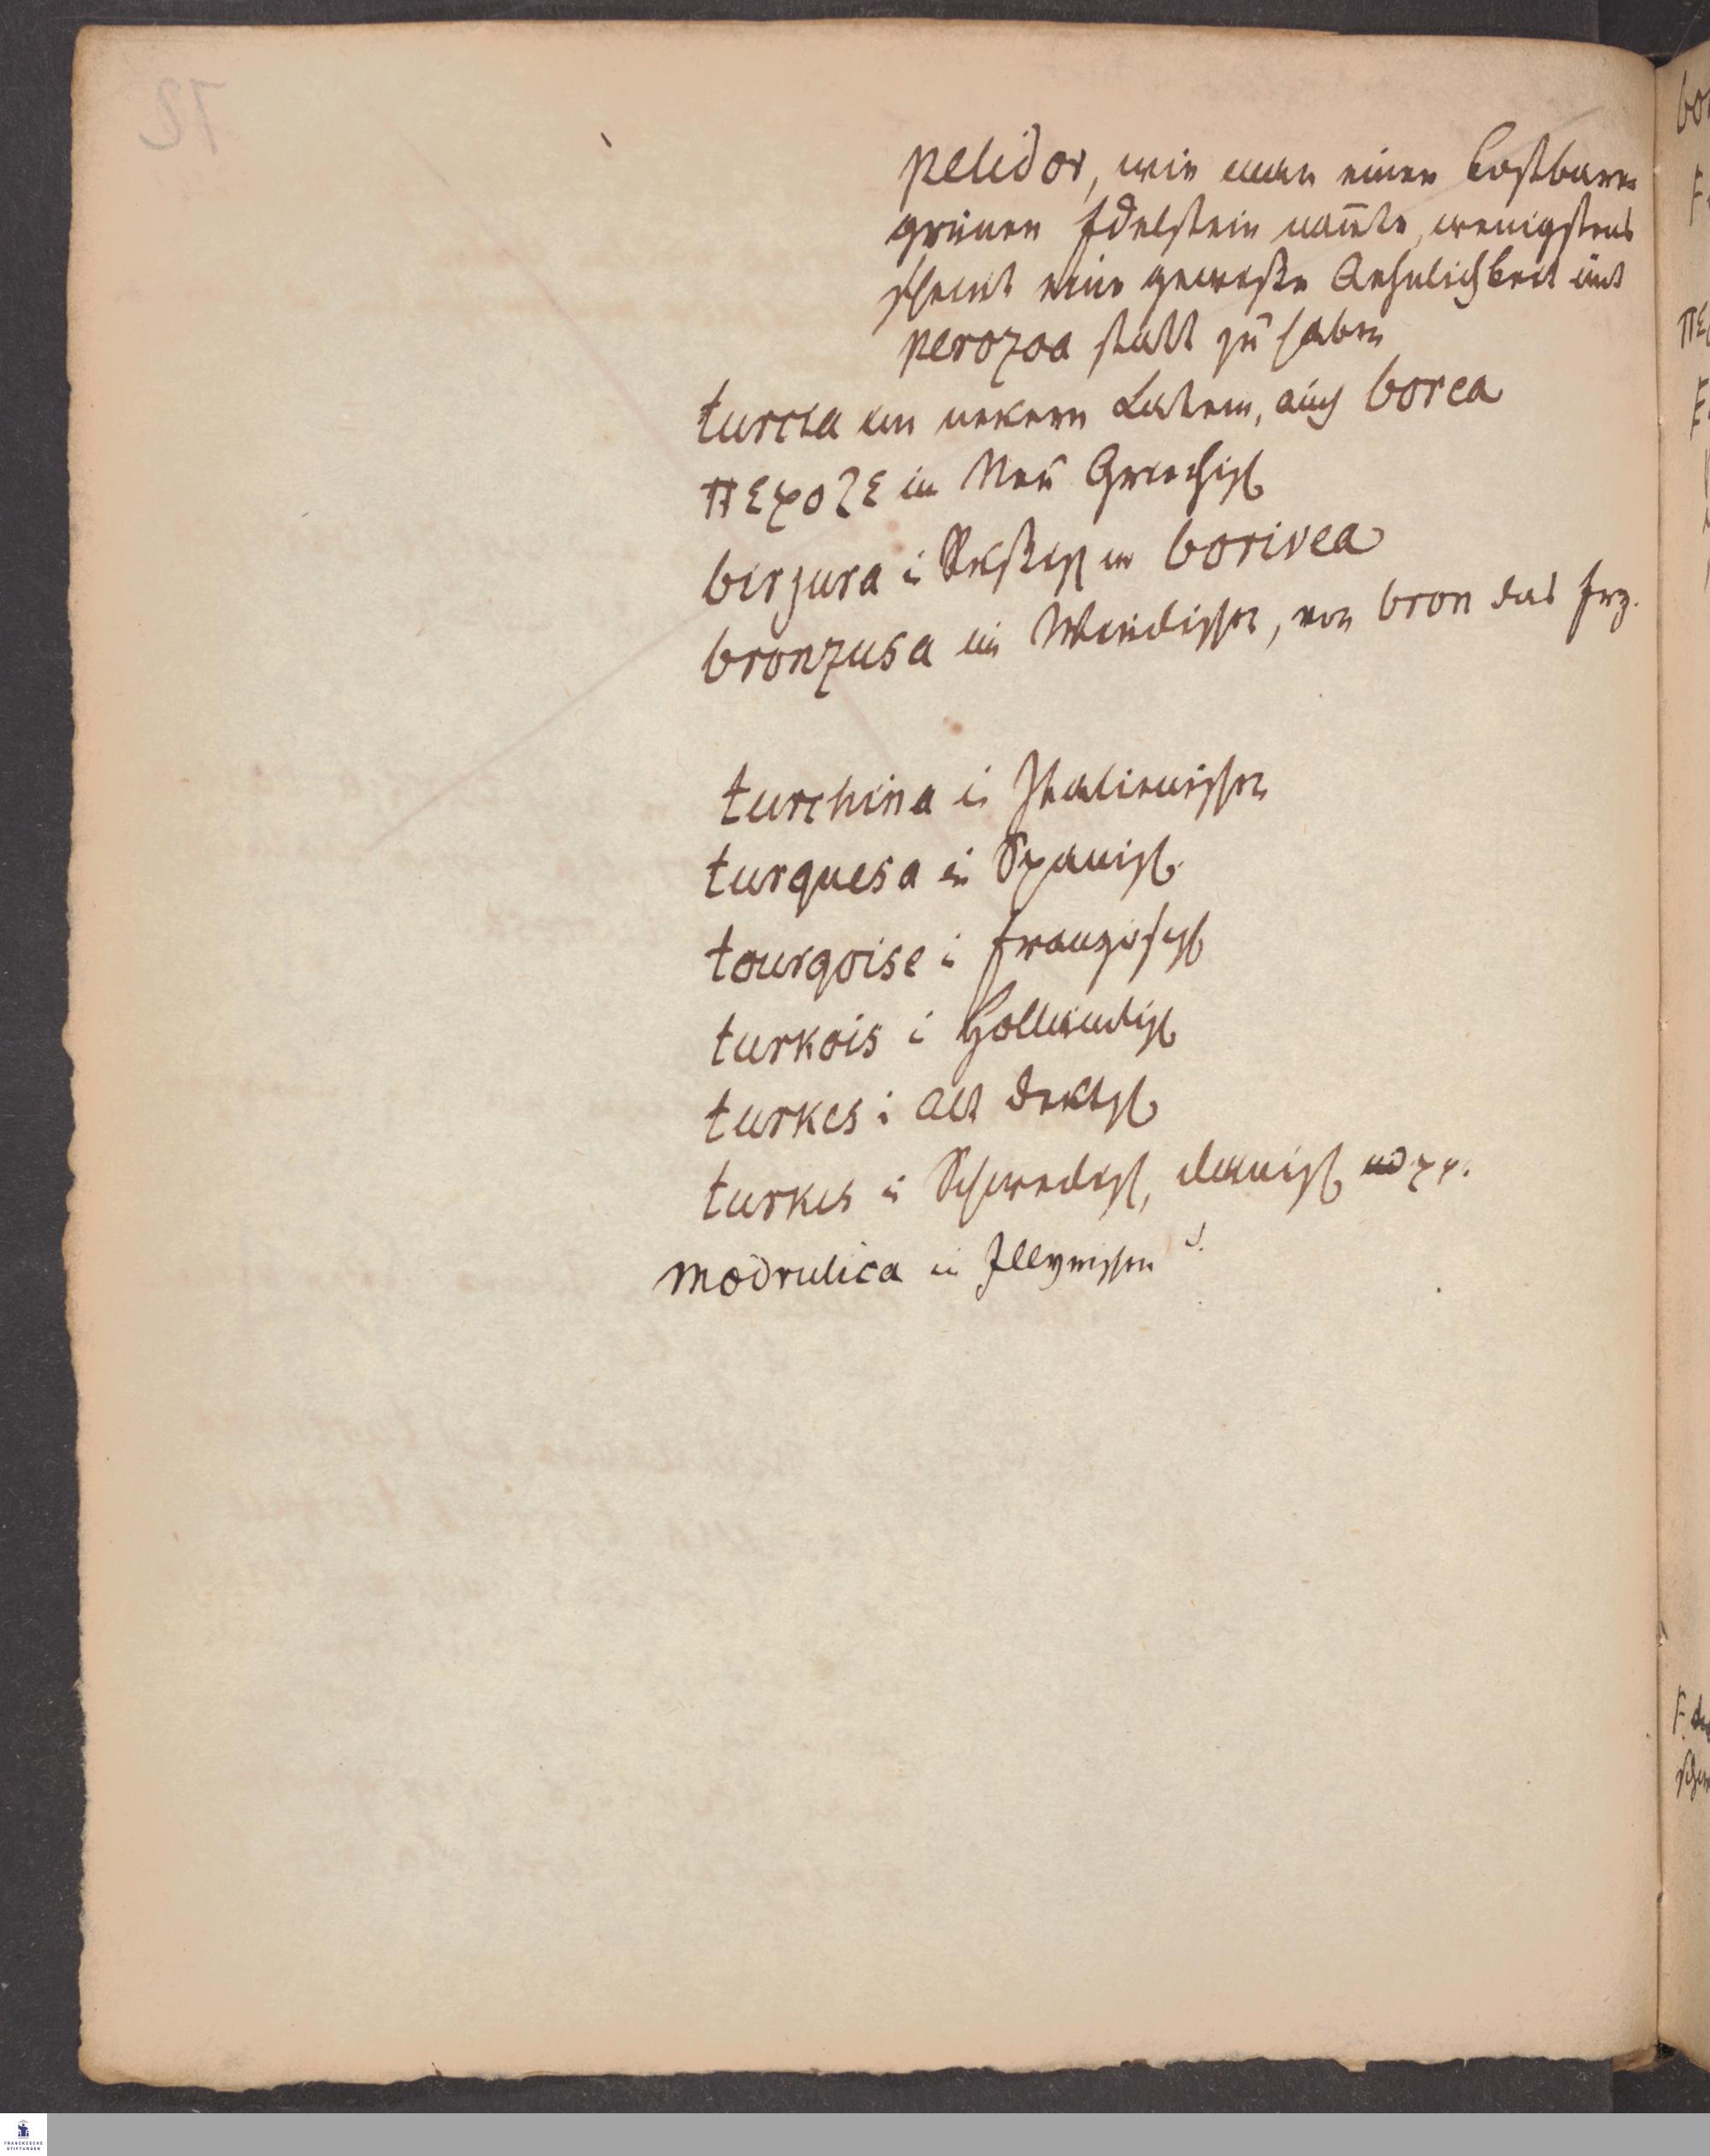 pelidor, wie man einen kostbaren
grünen Edelstein nañte, wenigstens
scheint eine gewiße Aehnlichkeit mit
perozoa statt zu haben
turcia im nekern Latein, auch borea
περοζε in Neu Griechisch
birzura i Rußisch un borivea
bronzusa im Windischen, von bron das Erz.
turchina i Italienischen
turquesa in Spanisch
tourqoise i französisch
turkois i Holländisch
turkes i alt deutsch
turkis in Schwedisch, dänisch
modrulica in Illyrischen
FRANCKESCHE
STIFTUNGEN